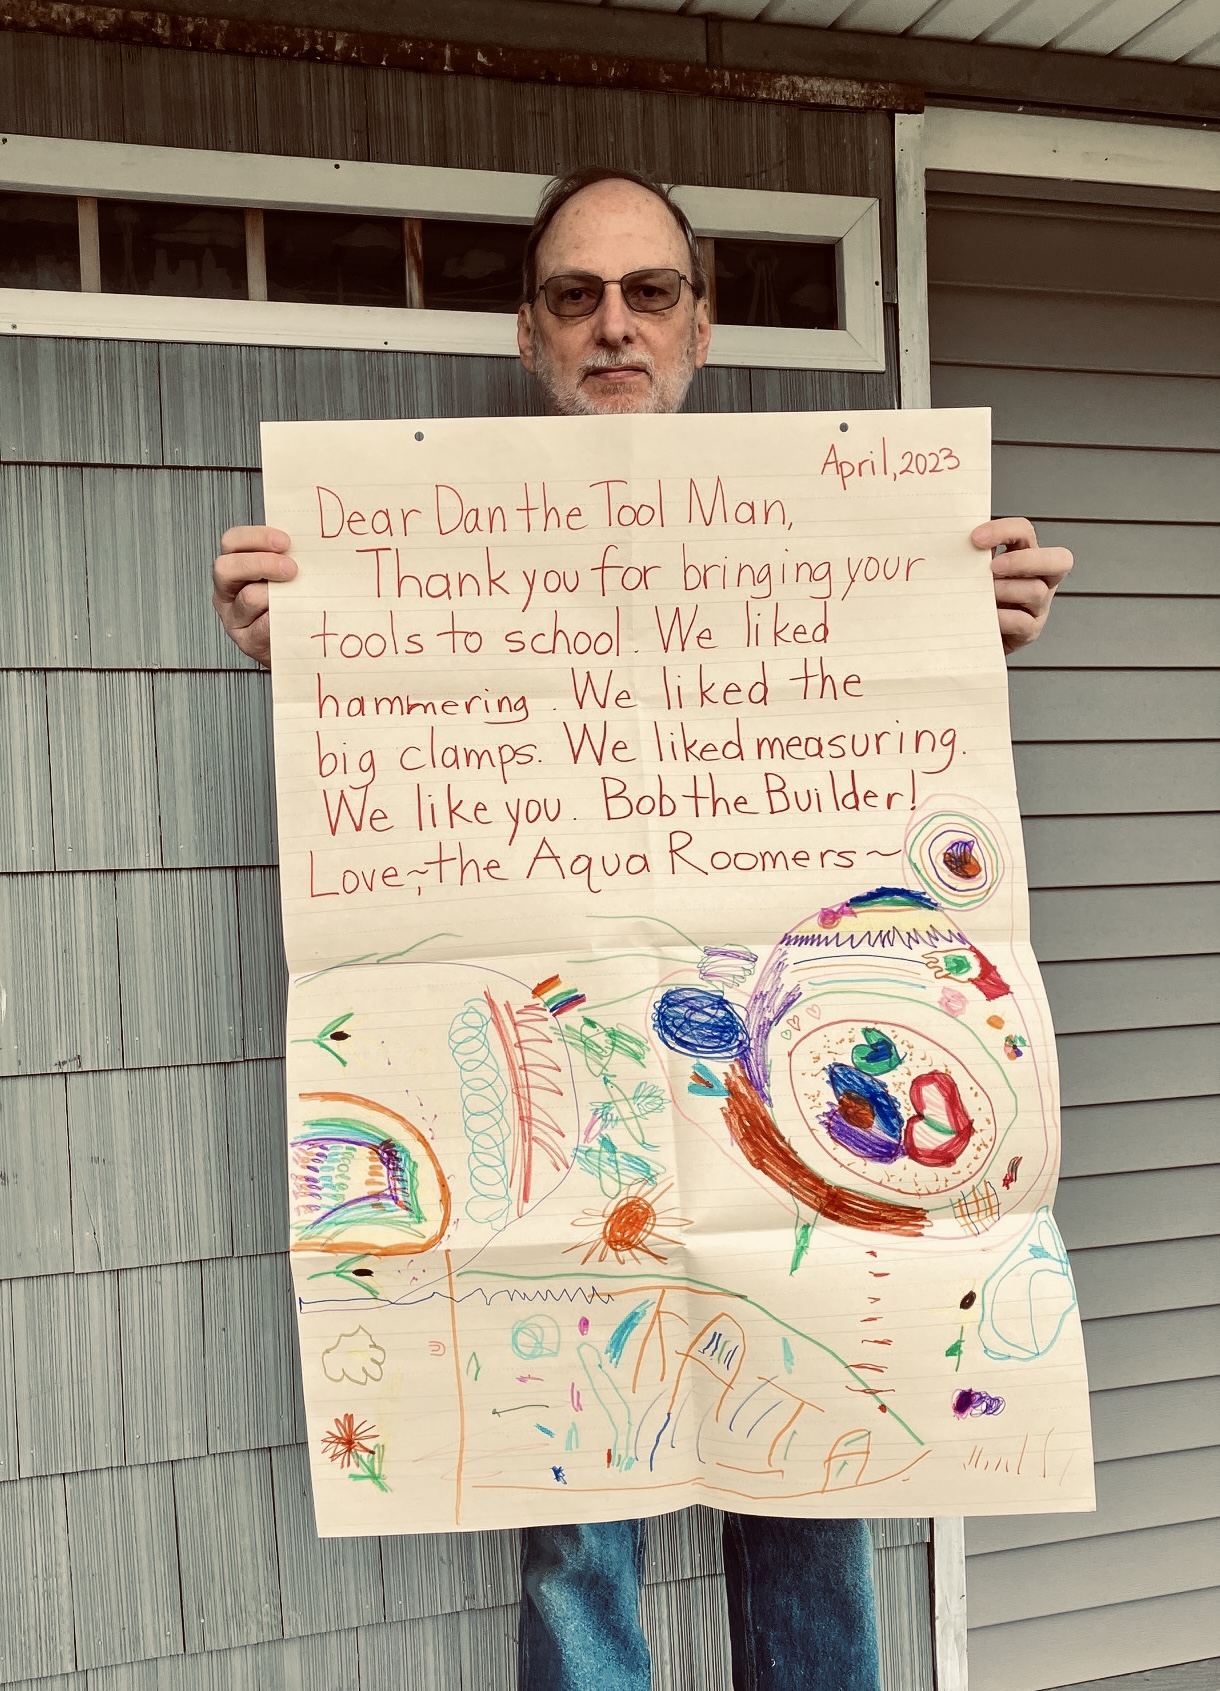 April, 2023
Dear Dan the Tool Man,
Thank you for bringing your
tools to school. We liked
hammering. We liked the
big clamps. We liked measuring.
We like you. Bob the Builder!
Love~, the Aqua Roomers~